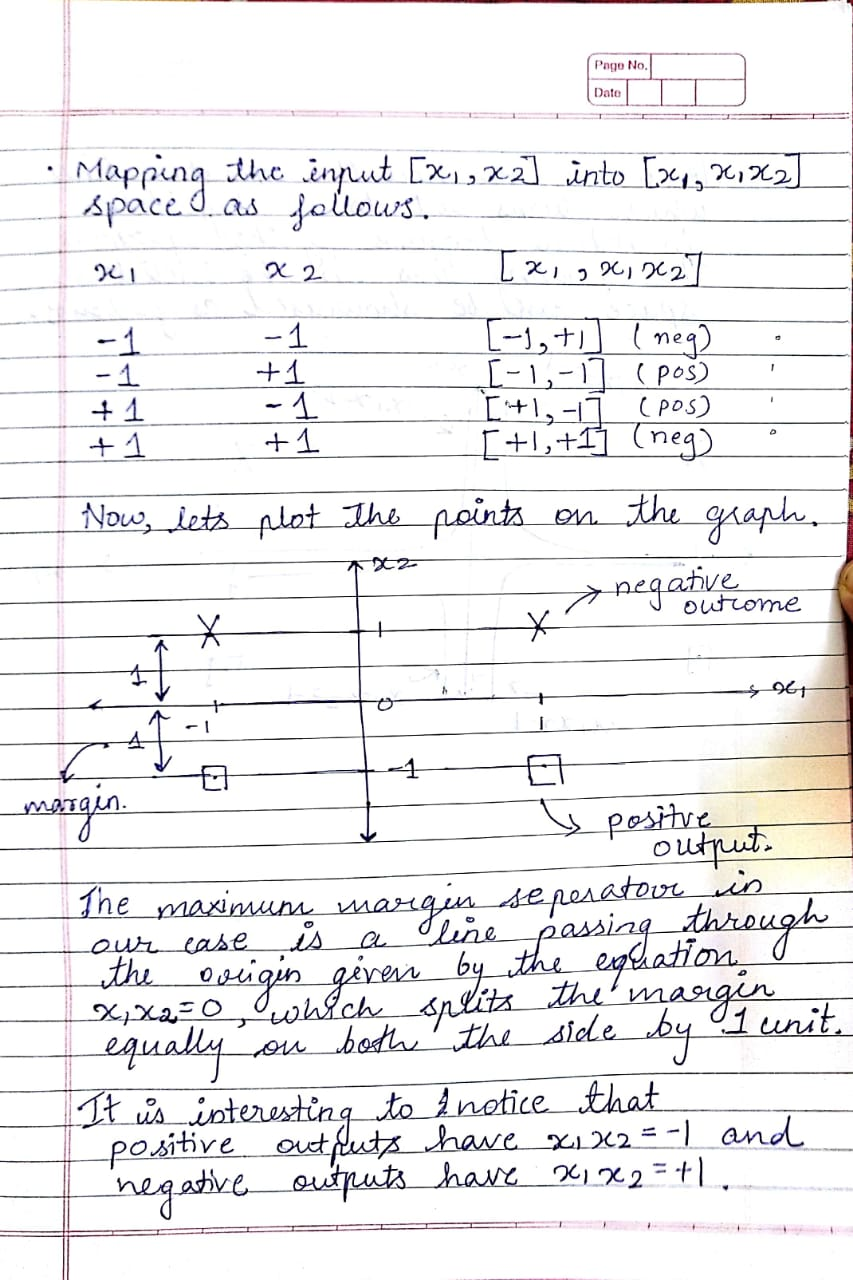 Page No.
Date
· Mapping the input [x1, x2] into [x1, x1x2]
space as follows.
x1 x2 [x1, x1x2]
-1 -1 [-1, +1] (neg)
-1 +1 [-1, -1] (pos)
+1 -1 [+1, -1] (pos)
+1 +1 [+1, +1] (neg)
Now, lets plot the points on the graph.
x2
negative
outcome
1
1
x1
0
-1
1
1
-1
margin.
positve
output.
The maximum margin seperatour in
our case is a line passing through
the origin given by the equation
x1x2=0, which splits the margin
equally on both the side by 1 unit.
It is interesting to notice that
positive outputs have x1x2 = -1 and
negative outputs have x1x2 = +1.